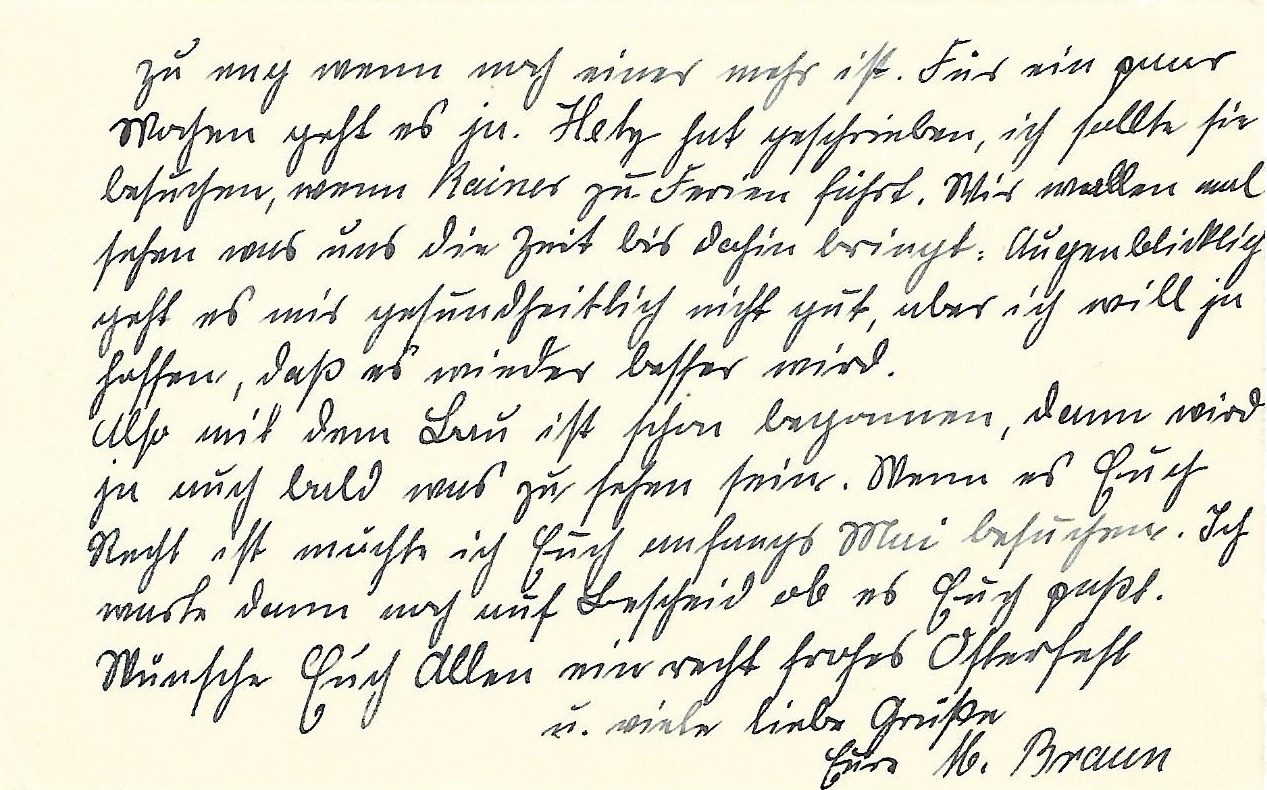 zu eng wenn noch einer mehr ist. Für ein paar
Wochen geht es ja. Hety hat geschrieben, ich sollte sie
besuchen, wenn Rainer zu Ferien führt. Wir wollen mal
sehen was uns die Zeit bis dahin bringt. Augenblicklich
geht es mir gesundheitlich nicht gut, aber ich will ja
hoffen, daß es wieder besser wird.
Also mit dem Bau ist schon begonnen, dann wird
ja auch bald was zu sehen sein. Wenn es Euch
Recht ist möchte ich Euch anfangs Mai besuchen. Ich
warte dann noch auf Bescheid ob es Euch paßt.
Wünsche Euch Allen ein recht frohes Osterfest
u. viele liebe Grüße
Eure M. Braun